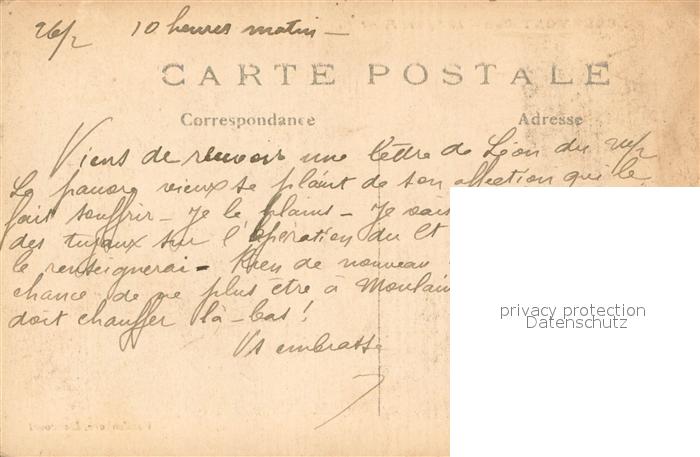 26/2 10 heures matin –
CARTE POSTALE
Correspondance Adresse
Viens de recevoir une lettre de Léon du 24/2
Le pauvre vieux se plaint de son affection qui le
fait souffrir – Je le plains – Je vais
des tuyaux sur l'opération du Ct
le renseignerai – Rien de nouveau
chance de ne plus être à
doit chauffer là-bas !
Vs embrasse
privacy protection
Datenschutz